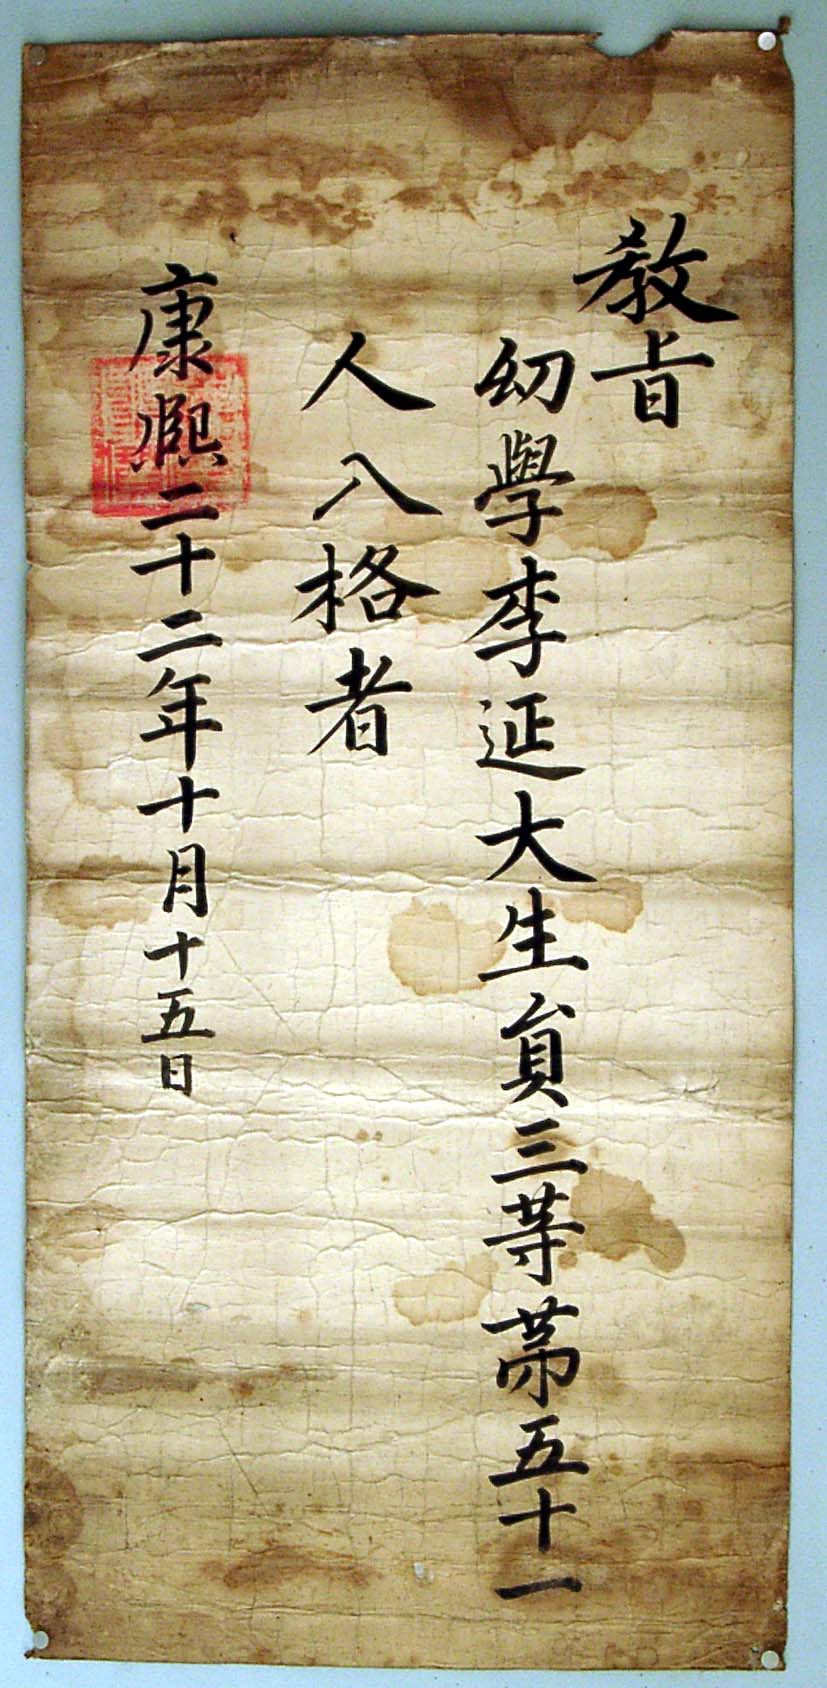 教旨
幼學李延大生員三等第五十一
人入格者
康熙二十二年十月十五日